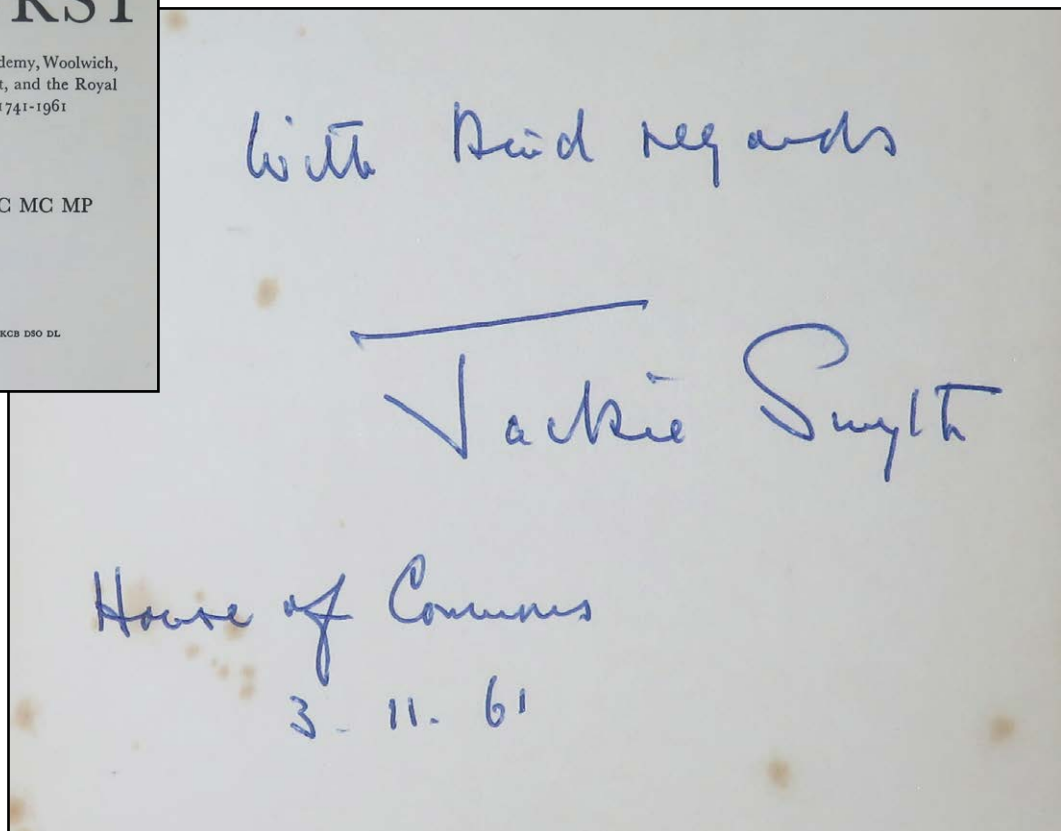 RST
demy, Woolwich,
t, and the Royal
1741-1961
C MC MP
KCB DSO DL
With kind regards
Jackie Smyth
House of Commons
3. 11. 61